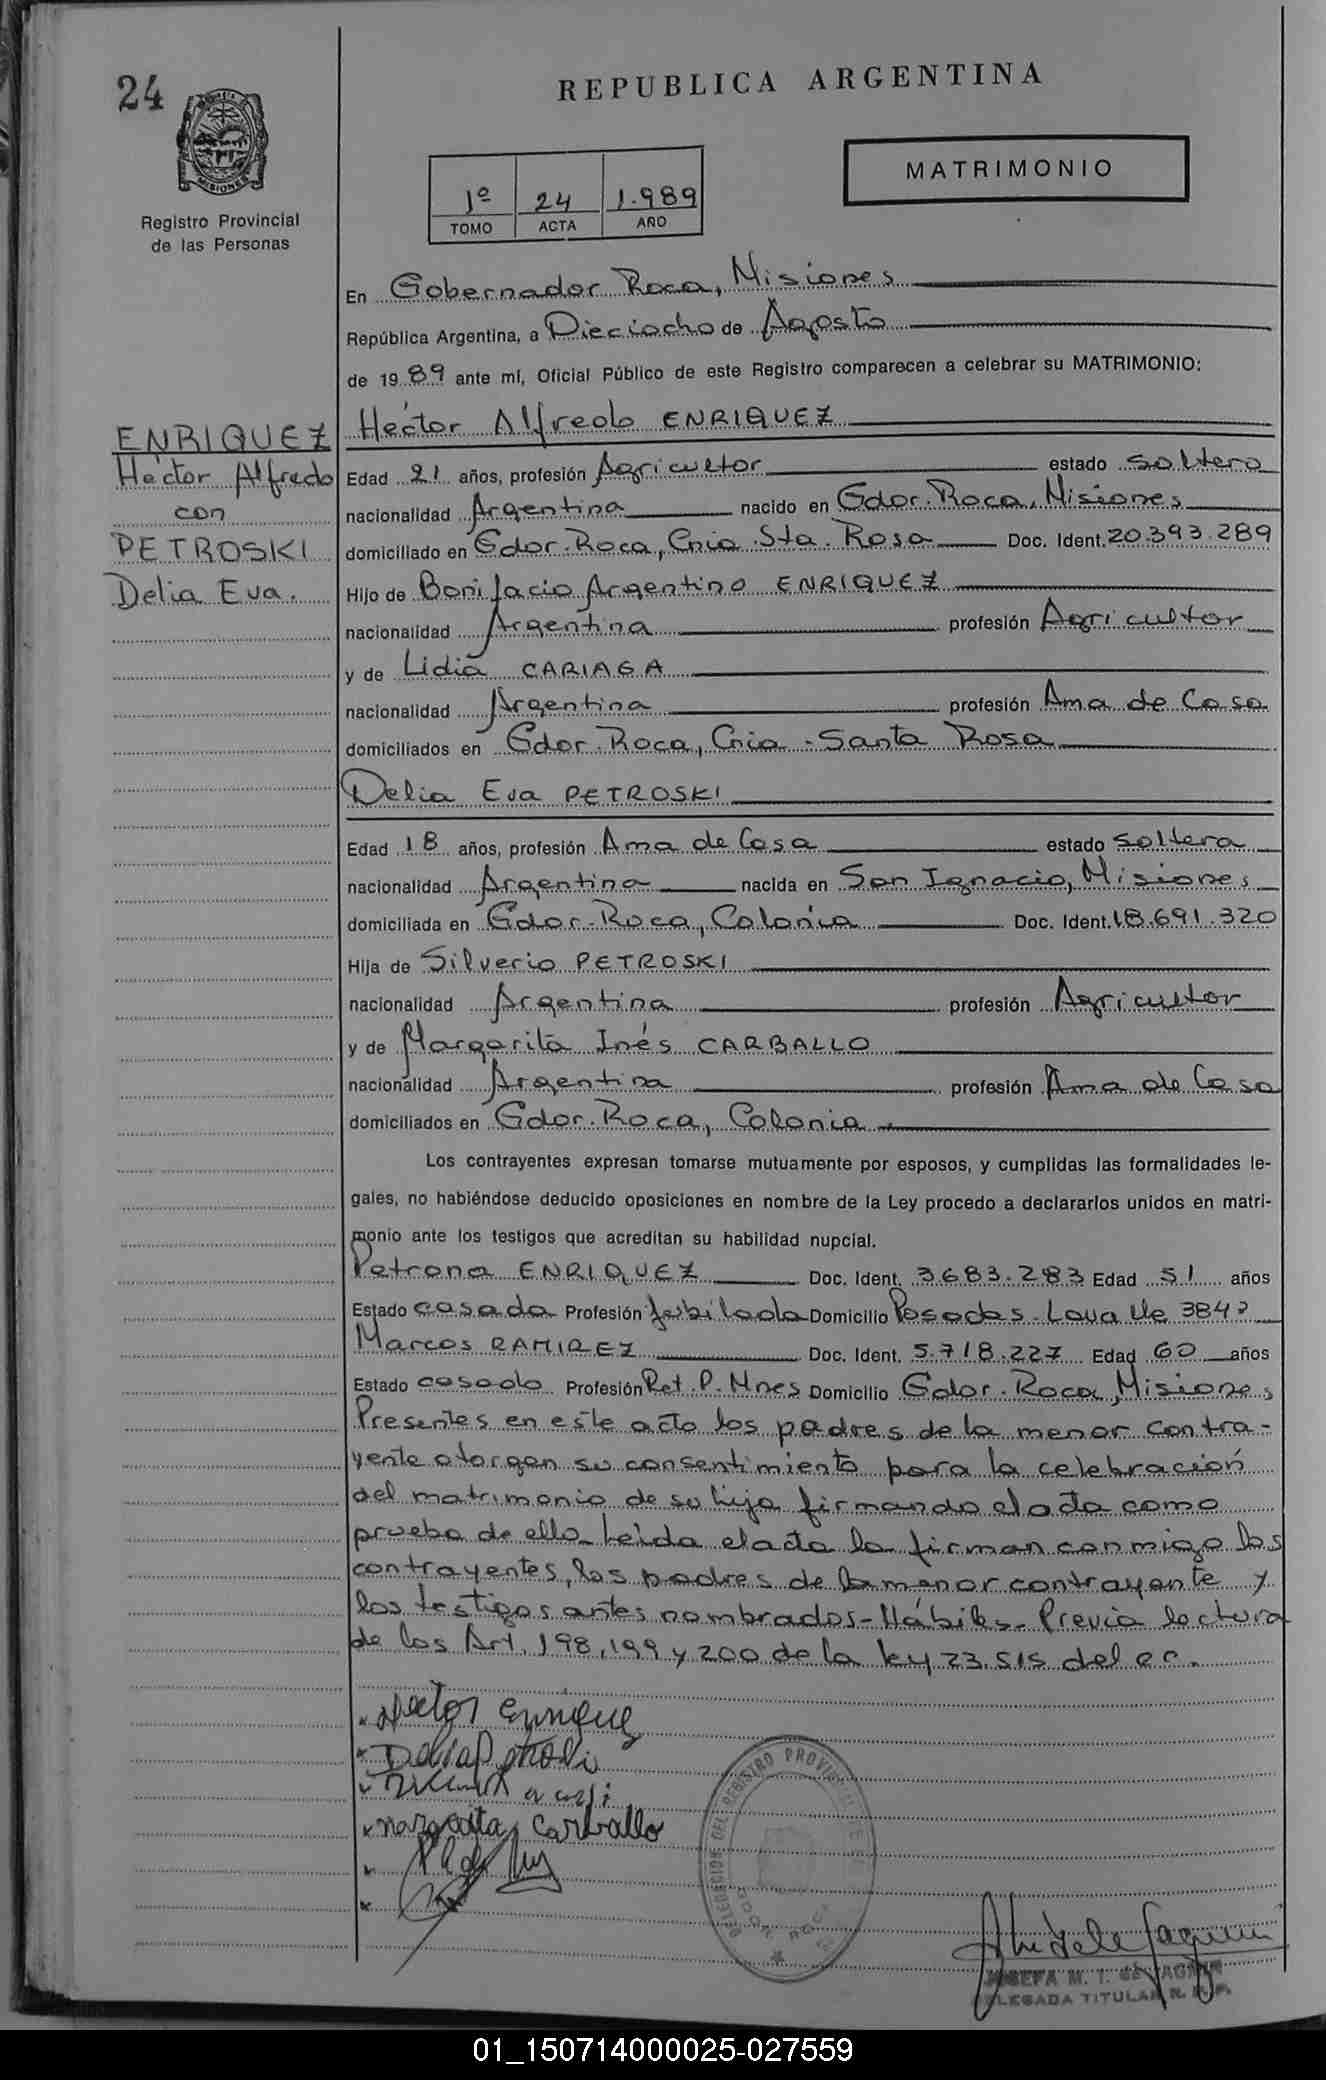 24
REPUBLICA ARGENTINA
MISIONES
Registro Provincial
de las Personas
MATRIMONIO
1º 24 1.989
TOMO ACTA AÑO
En Gobernador Roca, Misiones
República Argentina, a Dieciocho de Agosto
de 19 89 ante mí, Oficial Público de este Registro comparecen a celebrar su MATRIMONIO:
ENRIQUEZ
Héctor Alfredo
con
PETROSKI
Delia Eva.
Héctor Alfredo ENRIQUEZ
Edad 21 años, profesión Agricultor estado soltero
nacionalidad Argentina nacido en Gdor. Roca, Misiones
domiciliado en Gdor. Roca, Cnia. Sta. Rosa Doc. Ident. 20.393.289
Hijo de Bonifacio Argentino ENRIQUEZ
nacionalidad Argentina profesión Agricultor
y de Lidia CARIAGA
nacionalidad Argentina profesión Ama de Casa
domiciliados en Gdor. Roca, Cnia - Santa Rosa
Delia Eva PETROSKI
Edad 18 años, profesión Ama de Casa estado soltera
nacionalidad Argentina nacida en San Ignacio, Misiones
domiciliada en Gdor. Roca, Colonia Doc. Ident. 18.691.320
Hija de Silverio PETROSKI
nacionalidad Argentina profesión Agricultor
y de Margarita Inés CARBALLO
nacionalidad Argentina profesión Ama de Casa
domiciliados en Gdor. Roca, Colonia
Los contrayentes expresan tomarse mutuamente por esposos, y cumplidas las formalidades le-
gales, no habiéndose deducido oposiciones en nombre de la Ley procedo a declararlos unidos en matri-
monio ante los testigos que acreditan su habilidad nupcial.
Petrona ENRIQUEZ Doc. Ident. 3683.283 Edad 51 años
Estado casada Profesión Jubilada Domicilio Posadas - Lavalle 3842
Marcos RAMIREZ Doc. Ident. 5.718.227 Edad 60 años
Estado casado Profesión Ret. P. Mnes Domicilio Gdor. Roca, Misiones
Presentes en este acto los padres de la menor contra-
yente otorgan su consentimiento para la celebración
del matrimonio de su hija firmando el acta como
prueba de ello. Leida el acta la firman conmigo los
contrayentes, los padres de la menor contrayente y
los testigos antes nombrados - Hábiles. Previa lectura
de los Art. 198, 199 y 200 de la ley 23.515 del c.c.
Hector Enriquez
Delia Petroski
Margarita Carballo
DELEGACION DEL REGISTRO PROVINCIAL
GDOR. ROCA
JOSEFA M. T. de
DELEGADA TITULAR R. P. P.
01_150714000025-027559